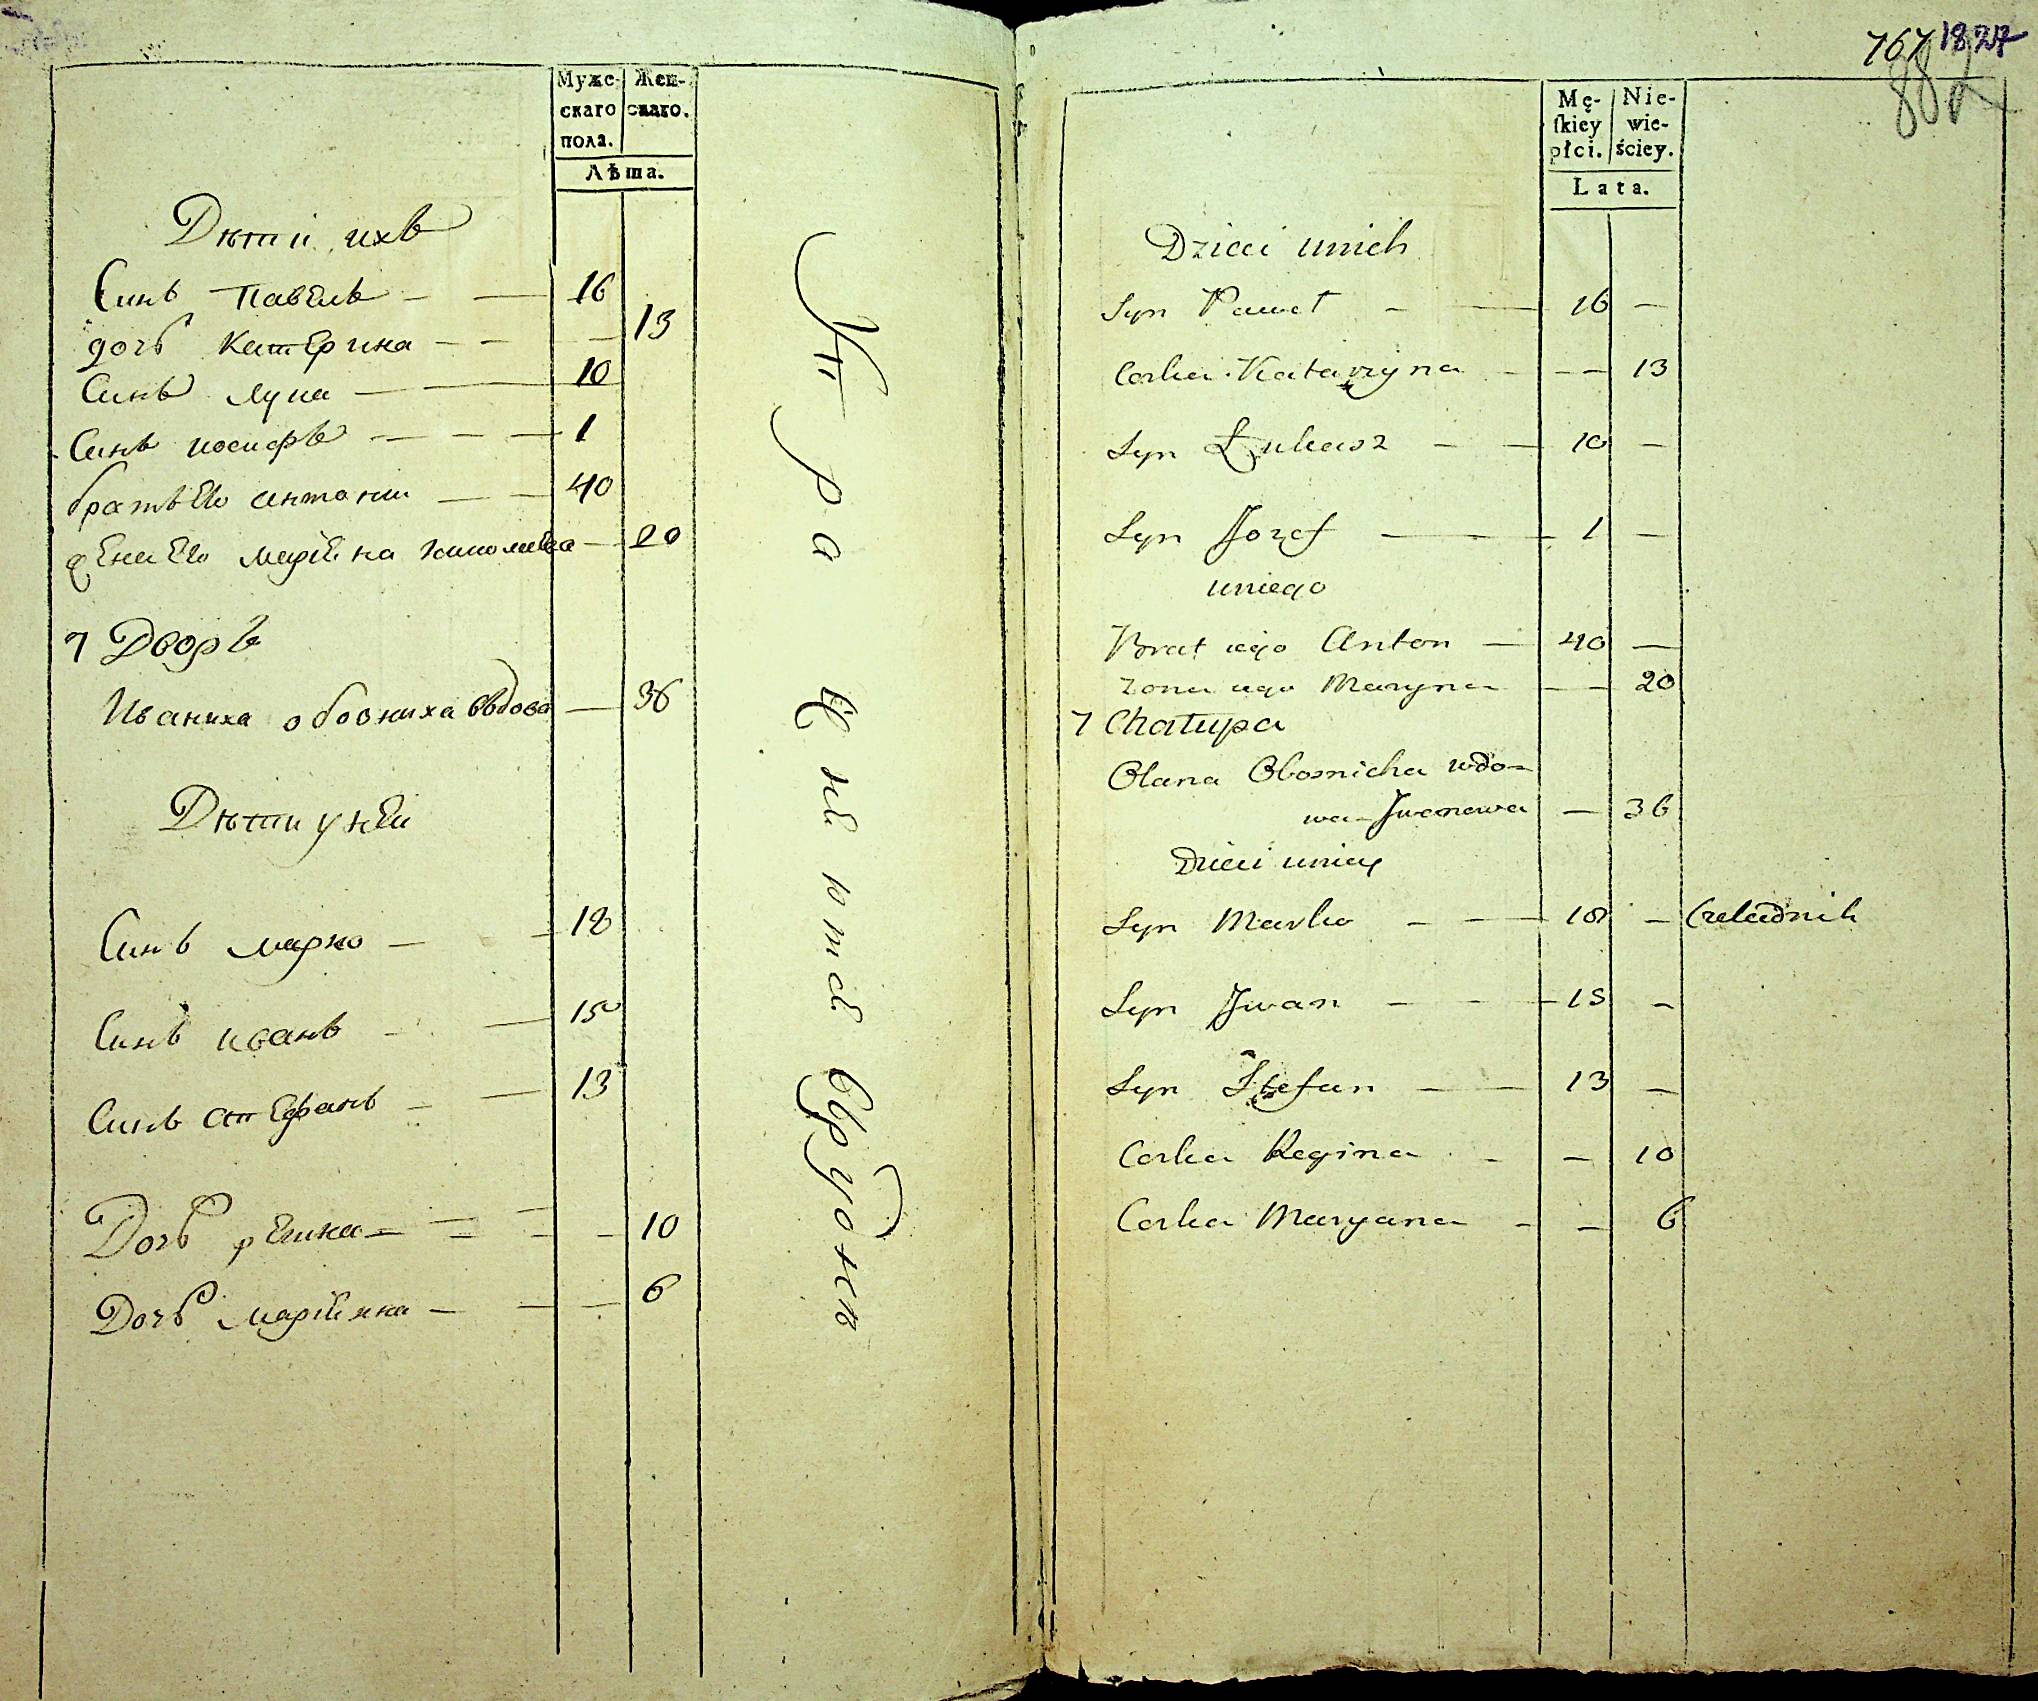 Муже-
скаго
пола.
Жен-
скаго.
Лѣта.
Дѣти ихъ
Синъ Павелъ — — 16
дочь Катерина — — — 13
Синъ Лука — — 10
Синъ иосифъ — — — 1
братъ Его антони — — 40
жена Его Марина — 20
7 Дворъ
Иваниха обозниха вдова — 36
Дѣти у нЕи
Синъ марко — — 18
Синъ иванъ — — 15
Синъ стЕфанъ — — 13
Дочь — — — — 10
Дочь марияна — — — 6
767 1827
882
Mę-
ſkiey
płci.
Nie-
wie-
ściey.
Lata.
Dzieci unich
Syn Paweł — — 16 —
Corka Katarzyna — — — 13
Syn Łukasz — — 10 —
Syn Jozef — — 1 —
uniego
Brat iego Anton — 40 —
Zona iego Maryna — — 20
7 Chałupa
Oboznicha wdo-
wa Iwanowa — 36
Dzieci uniey
Syn Marko — — 18 — Czeladnik
Syn Iwan — — 15 —
Syn Stefan — — 13 —
Corka Regina — — 10
Corka Maryana — — 6